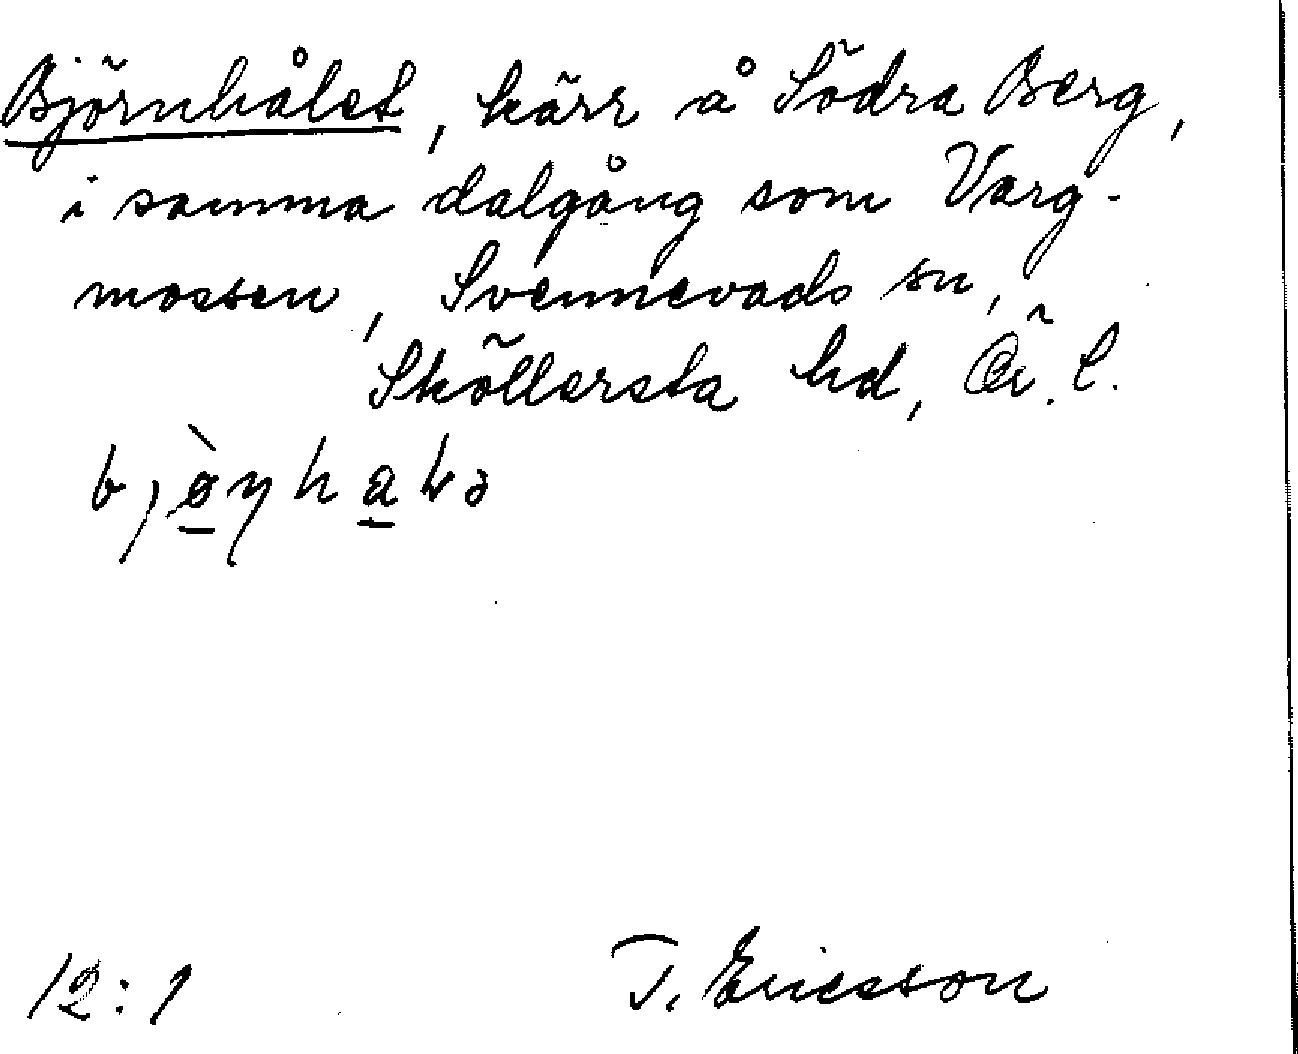 Björnhålet, kärr å Södra Berg,
i samma dalgång som Varg-
mossen, Svennevads sn,
Sköllersta hd, Ö. L.
12:1 T. Ericsson